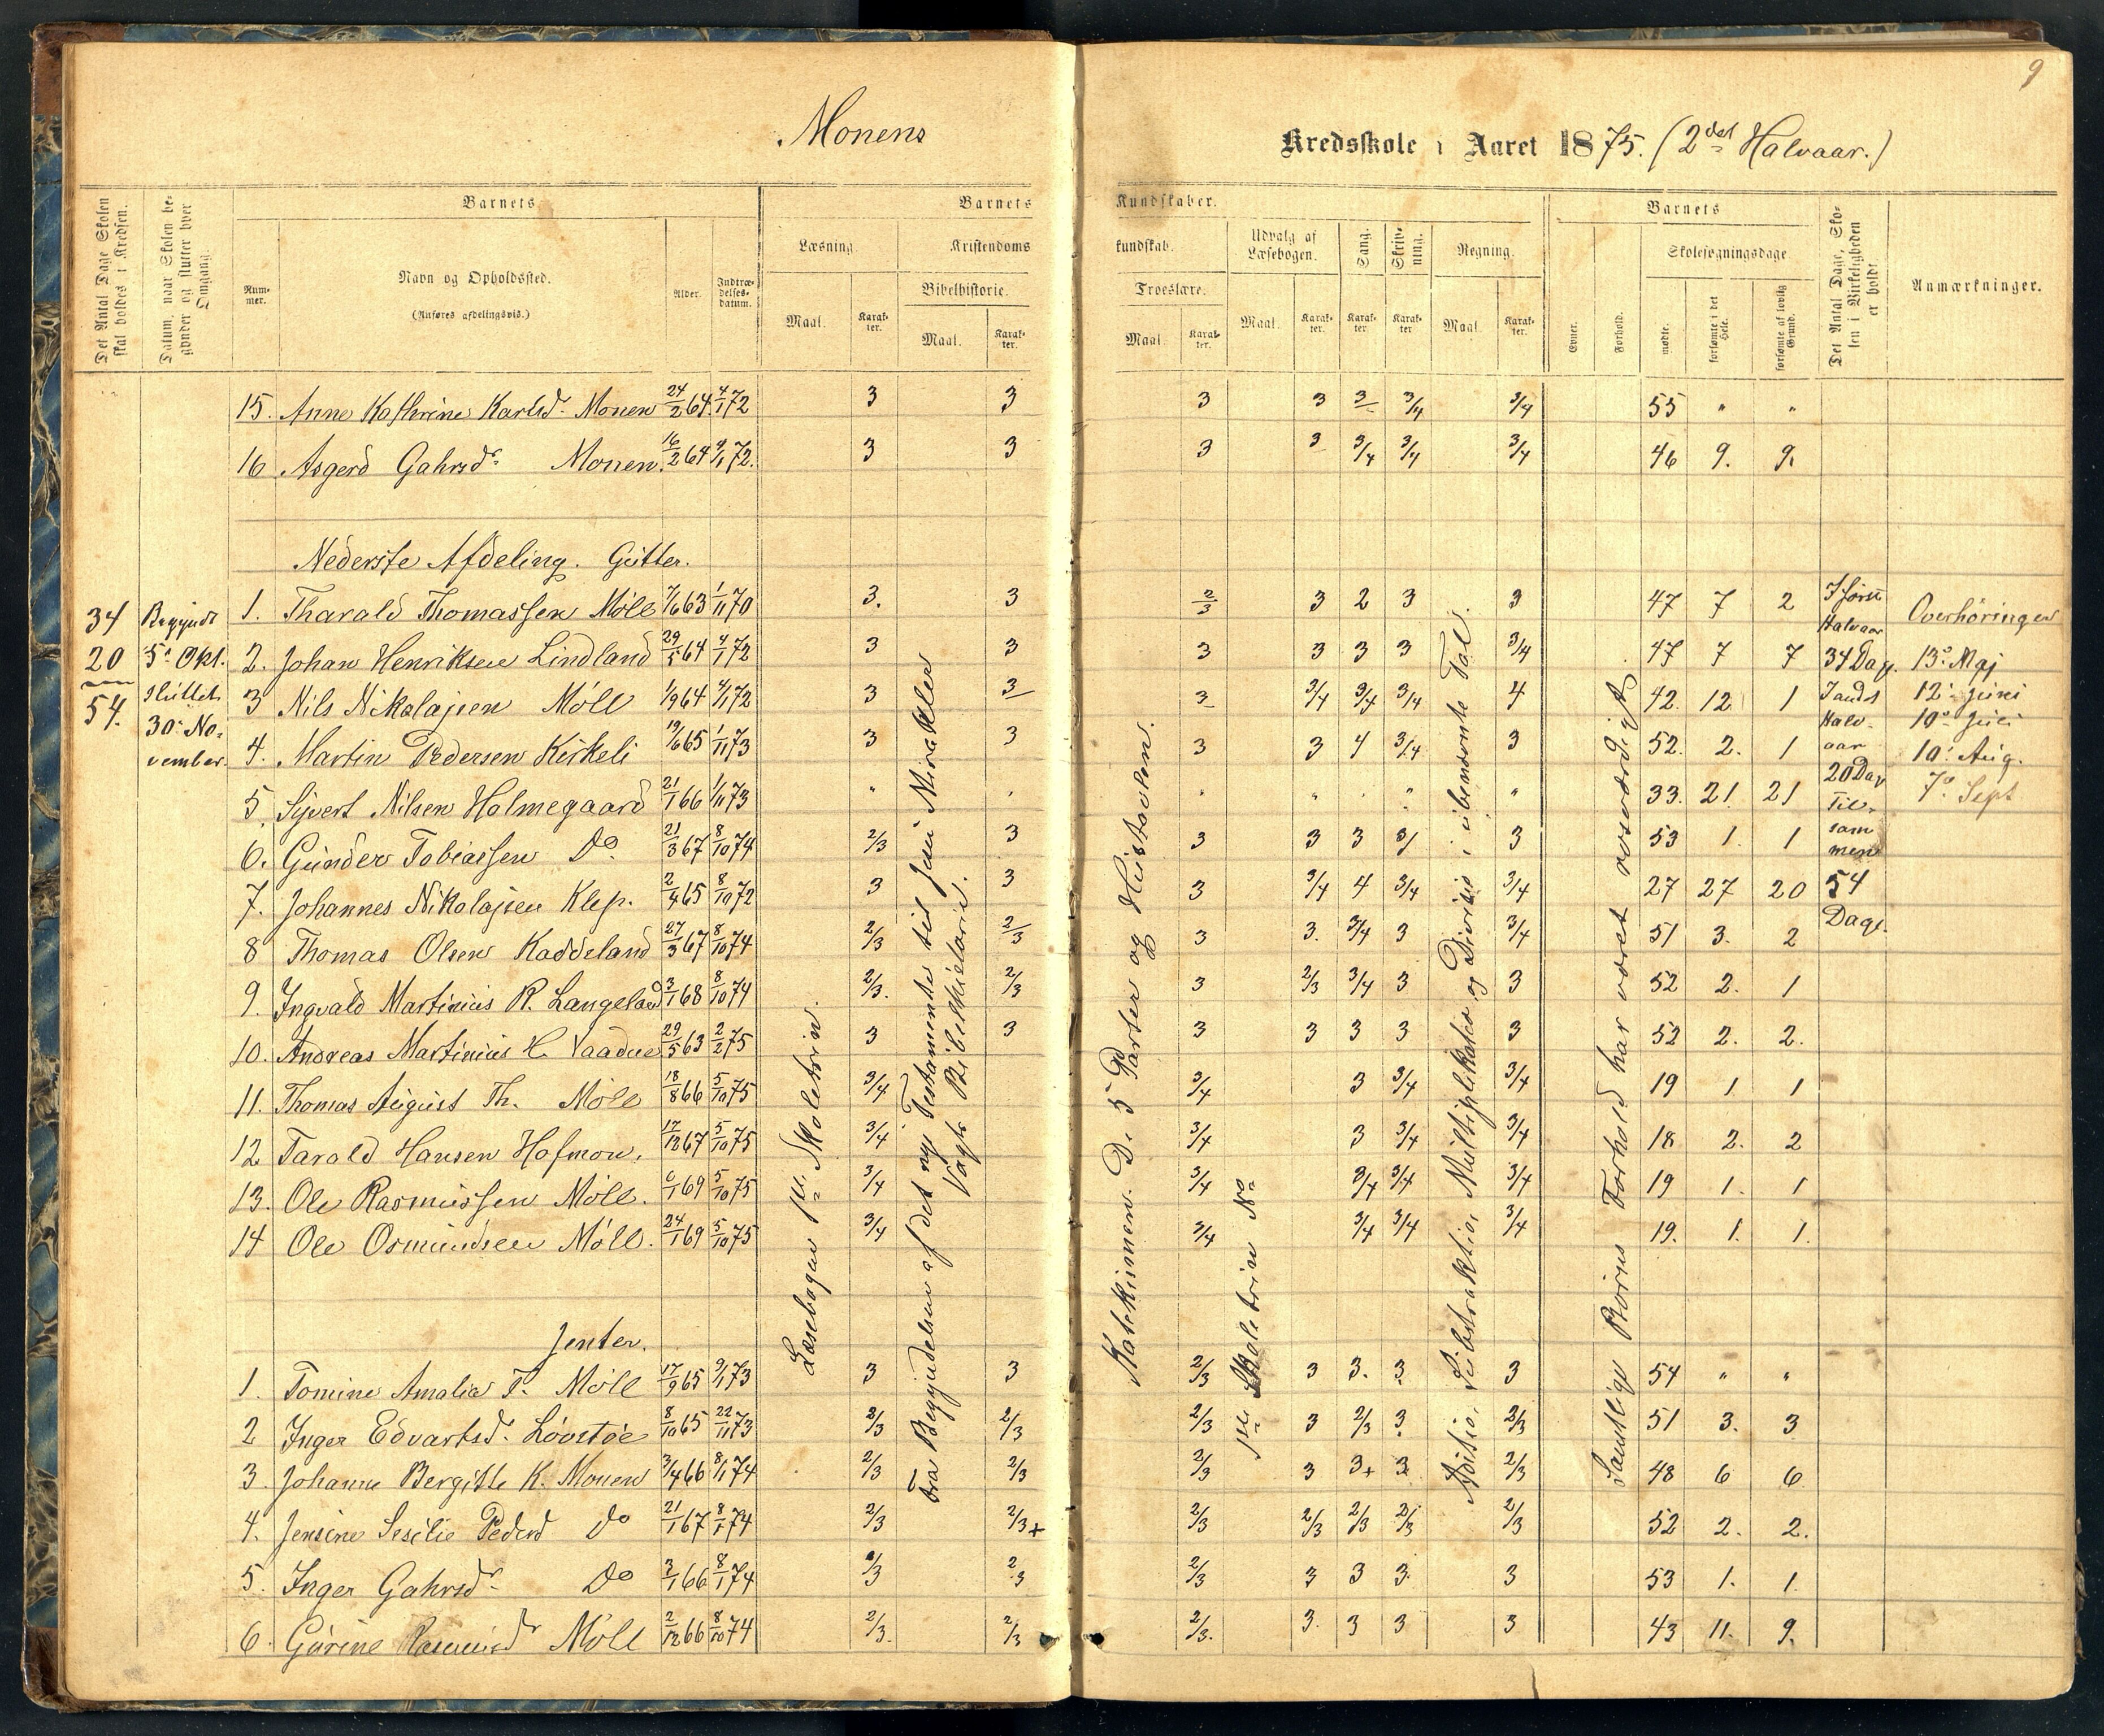 9
Monens
Kredsskole i Aaret 1875. (2det Halvaar.)
Det Antal Dage Skolen skal holdes i Kredsen.
Datum, naar Skolen begynder og slutter hver Omgang.
Barnets
Nummer.
Navn og Opholdssted.
(Anføres afdelingsvis.)
Alder.
Indtrædelses-datum.
Barnets Kundskaber.
Læsning.
Maal.
Karakter.
Kristendomskundskab.
Bibelhistorie.
Maal.
Karakter.
Troeslære.
Maal
Karakter.
Udvalg af Læsebogen.
Maal.
Karakter.
Sang.
Karakter.
Skrivning.
Karakter
Regning.
Maal.
Karakter.
Barnets
Evner.
Forhold.
Skolesøgningsdage.
mødte.
forsømte i det Hele.
forsømte af lovlig Grund.
Det Antal Dage, Skolen i Virkeligheden er holdt
Anmærkninger.
15. Anne Kathrine Karlsd. Monen 24/2 64 4/1 72 3 3 3 3 3/ 3/4 3/4 55 " "
16 Asgerd Gahrsdr Monen 16/2 64 4/1 72. 3 3 3 3 3/4 3/4 3/4 46 9. 9.
Nederste Afdeling. Gutter.
1. Tharald Thomassen Möll 7/6 63 1/11 70 3. 3 2/3 3 2 3 3 47 7 2
2. Johan Henriksen Lindland 29/5 64 4/1 72 3 3 3 3 3 3 3/4 47 7 7
3 Nils Nikolajsen Möll 1/9 64 4/1 72 3 3/ 3 3/4 3/4 3/4 4 42. 12. 1
4. Martin Pedersen Kirkeli 19/6 65 1/11 73 3 3 3 3 4 3/4 3 52. 2. 1
5. Syvert Nilsen Holmegaard 21/1 66 1/11 73 " " " " " " " 33. 21. 21
6. Gunder Tobiassen Do 21/3 67 8/10 74 2/3 3 3 3 3 3/ 3 53 1. 1
7. Johannes Nikolajsen Klep. 2/4 65 8/10 72 3 3 3 3/4 4 3/4 3/4 27 27 20
8 Thomas Olsen Kaddeland 27/3 67 8/10 74 2/3 2/3 3 3. 3/4 3 3/4 51 3. 2
9. Ingvald Martinius R. Langeland 3/1 68 8/10 74 2/3. 2/3 3 2/3 3/4 3 3 52 2. 1
10. Andreas Martinius H. Vaadne 29/5 63 2/2 75 3 3 3 3 3 3 3 52 2. 2.
11. Thomas August Th. Möll 18/8 66 5/10 75 3/4 3/4 3 3/4 3/4 19 1 1
12 Tarald Hansen Hofmon. 17/12 67 5/10 75 3/4 3/4 3 3/4 3/4 18 2. 2
13. Ole Rasmussen Möll. 6/1 69 5/10 75 3/4 3/4 3/4 3/4 3/4 19 1. 1
14 Ole Osmundsen Möll. 24/1 69 5/10 75 3/4 3/4 3/4 3/4 3/4 19. 1. 1.
34
20
54.
Begyndt
5. Okt.
sluttet
30. No-
vember.
I først
Halvaar
34 Dag.
I andet
Halv-
aar
20 Dag
Til-
sam
men
54
Dage.
Overhöringer
13. Maj
12. Juni
10. Juli
10. Aug.
7. Sept
Jenter.
1. Tomine Amalia T. Möll 17/9 65 9/1 73 3 3 2/3 3 3. 3 3 54 " "
2 Inger Edvartsd. Lövstöe 8/10 65 22/11 73 2/3 2/3 2/3 3 2/3 3 2/3 51 3. 3
3. Johanne Bergitte K. Monen 3/4 66 8/1 74 2/3 2/3 2/3 3 3+ 3 2/3 48 6 6
4. Jensine Sesilie Pedersd Do 21/1 67 8/1 74 2/3 2/3+ 2/3 2/3 2/3 2/3 2/3 52 2. 2.
5. Inger Gahrsdr Do 3/1 66 8/1 74 2/3 2/3 2/3 3 3 3 3 53 1. 1
6. Gurine Rasmusdr Möll 2/12 66 8/10 74 2/3. 2/3 2/3. 3. 3 3 3 43 11. 9.
Læsebogen 1ste Skoletrin.
Fra Begyndelsen af det ny Testamente til Jesu Mirakler
Vogts Bibelhistorie.
Katekismen. De 5 Parter og Hustavlen.
1ste Skoletrin No
Addition, Subtraktion, Multiplikation og Division i ubenævnte Tal.
Samtlige Børns Forhold har været rosværdigt.